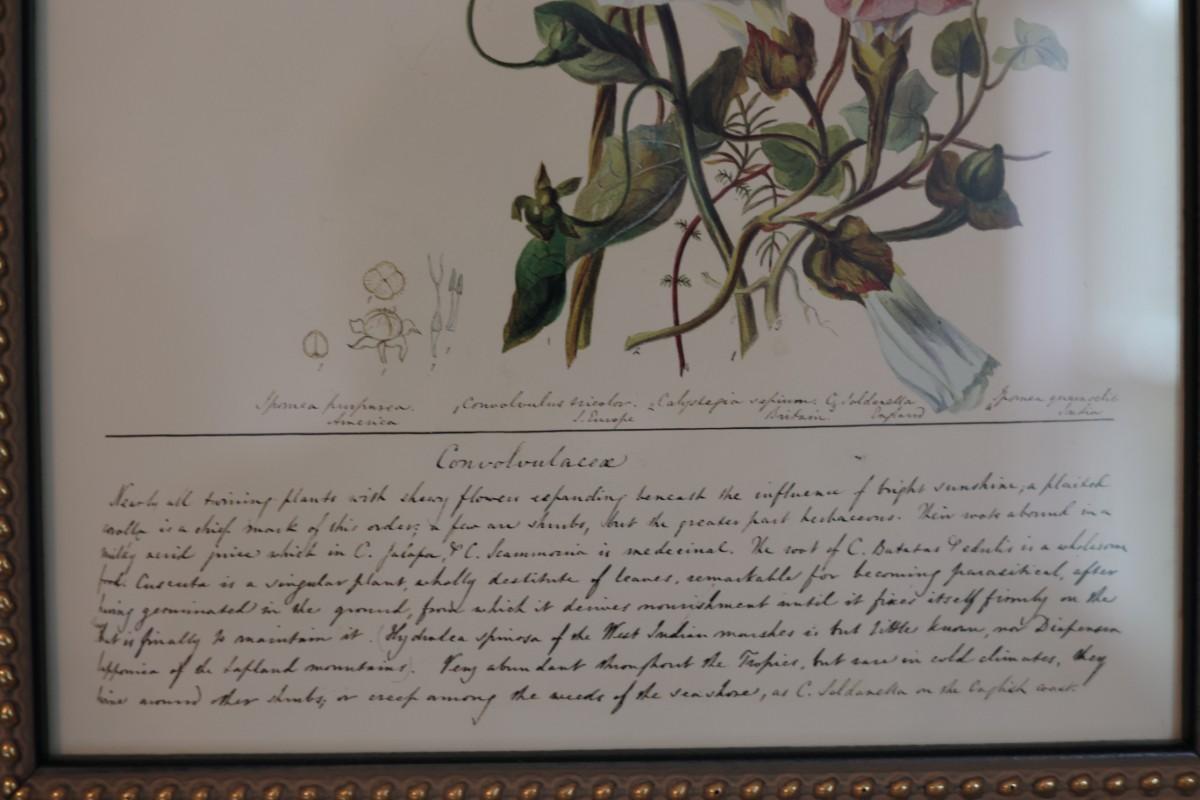 Ipomea purpurea. Convolvulus tricolor. Calystegia sepium. C. Soldanella Ipomea quamoclit
America S. Europe Britain. England India
Convolvulaceæ
Nearly all twining plants with shewy flowers expanding beneath the influence of bright sunshine, a plaited
corolla is a chief mark of this order; a few are shrubs, but the greater part herbaceous. Their roots abound in a
milky acrid juice which in C. Jalapa, & C. Scammonia is medicinal. The root of C. Batatas & edulis is a wholesome
food. Cuscuta is a singular plant, wholly destitute of leaves, remarkable for becoming parasitical, after
having germinated in the ground, from which it derives nourishment until it fixes itself firmly on the
that is finally to maintain it (Hydrolea spinosa of the West Indian marshes is but little known, nor Diapensia
lapponica of the Lapland mountains). Very abundant throughout the Tropics, but rare in cold climates, they
twine around other shrubs, or creep among the weeds of the sea shore, as C. Soldanella on the English coast.